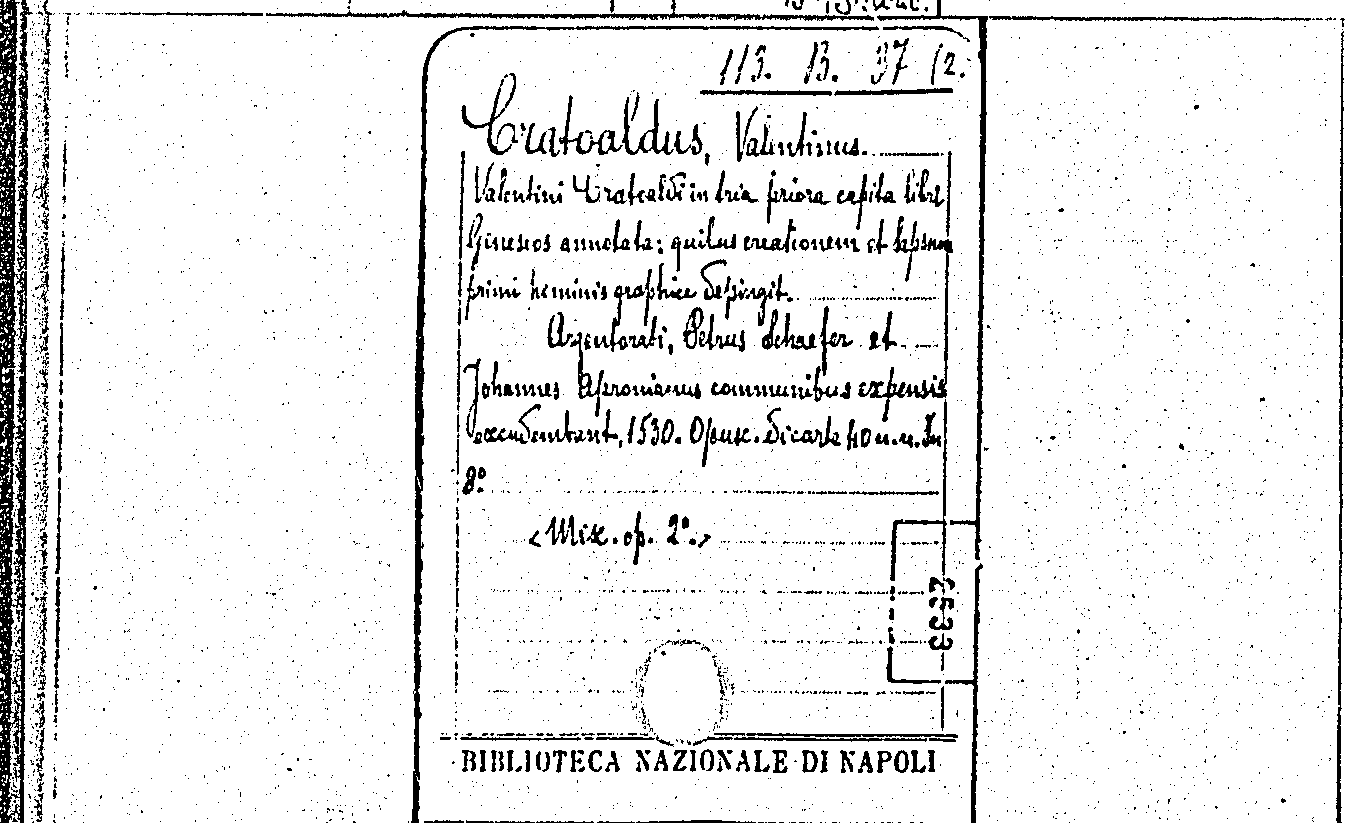 113. B. 37 (2.
Cratoaldus, Valentinus.
Valentini Cratoaldi in tria priora capita libri
Geneseos annotata: quibus creationem et lapsum
primi hominis graphice depingit.
Argentorati, Petrus Schaefer et
Johannes Apronianus communibus expensis
excudembant, 1530. Opusc. di carte 40 n.n. In
8º
<Misc. op. 2º.>
25333
BIBLIOTECA NAZIONALE DI NAPOLI